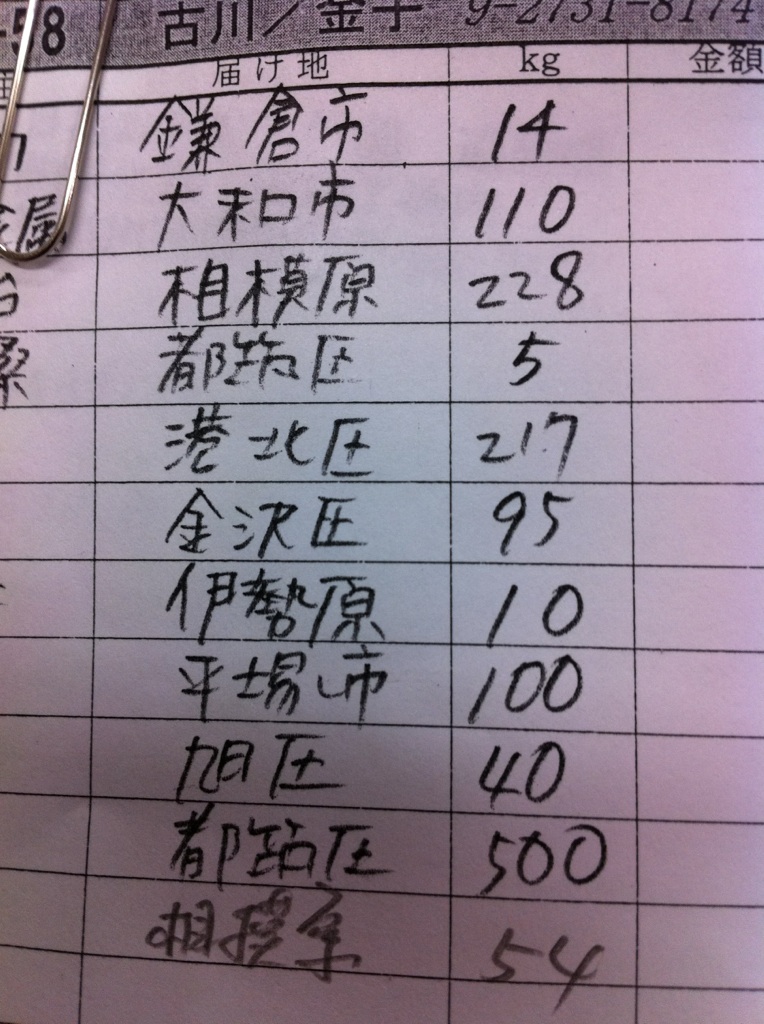 -58 古川／金子 9-2731-8174
届け地 kg 金額
鎌倉市 14
属 大和市 110
台 相模原 228
桑 都筑区 5
港北区 217
金沢区 95
伊勢原 10
平場市 100
旭区 40
都筑区 500
相模原 54